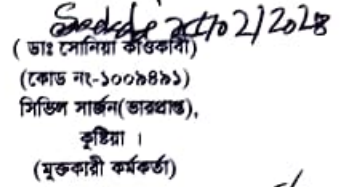 ২৮/০২/2028
( ডাঃ সোনিয়া কাওকাবী)
(কোড নং-১০০৯৪৯১)
সিভিল সার্জন(ভারপ্রাপ্ত),
কুষ্টিয়া ।
(মুক্তকারী কর্মকর্তা)